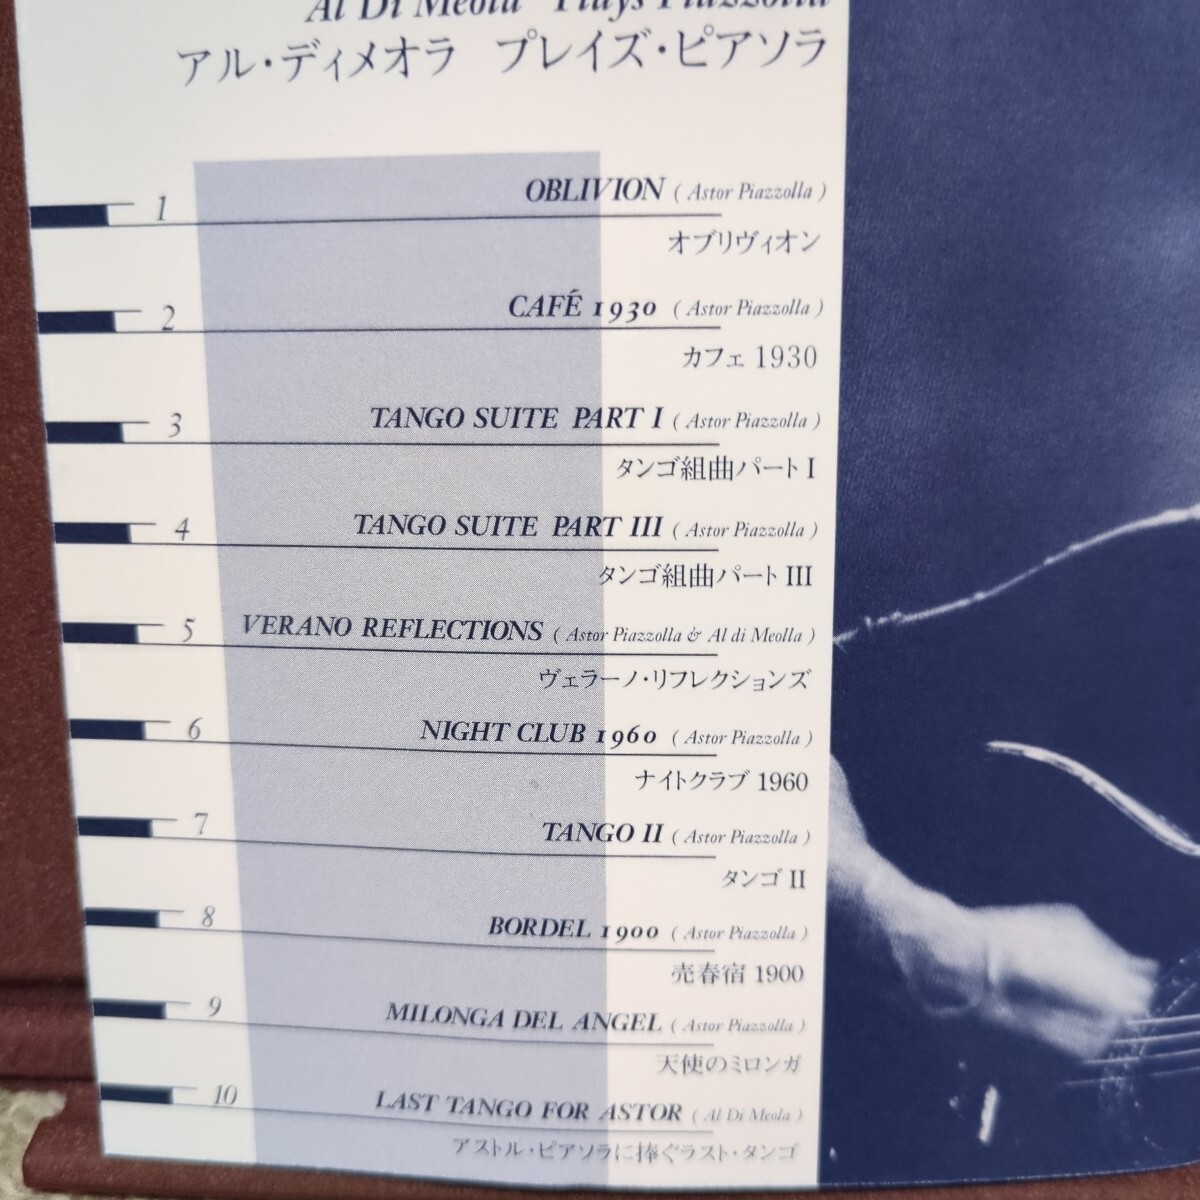 Al Di Meola Plays Piazzolla
アル・ディメオラ プレイズ・ピアソラ
1 OBLIVION ( Astor Piazzolla )
オブリヴィオン
2 CAFÉ 1930 ( Astor Piazzolla )
カフェ 1930
3 TANGO SUITE PART I ( Astor Piazzolla )
タンゴ組曲パート I
4 TANGO SUITE PART III ( Astor Piazzolla )
タンゴ組曲パート III
5 VERANO REFLECTIONS ( Astor Piazzolla & Al di Meolla )
ヴェラーノ・リフレクションズ
6 NIGHT CLUB 1960 ( Astor Piazzolla )
ナイトクラブ 1960
7 TANGO II ( Astor Piazzolla )
タンゴ II
8 BORDEL 1900 ( Astor Piazzolla )
売春宿 1900
9 MILONGA DEL ANGEL ( Astor Piazzolla )
天使のミロンガ
10 LAST TANGO FOR ASTOR ( Al Di Meola )
アストル・ピアソラに捧ぐラスト・タンゴ